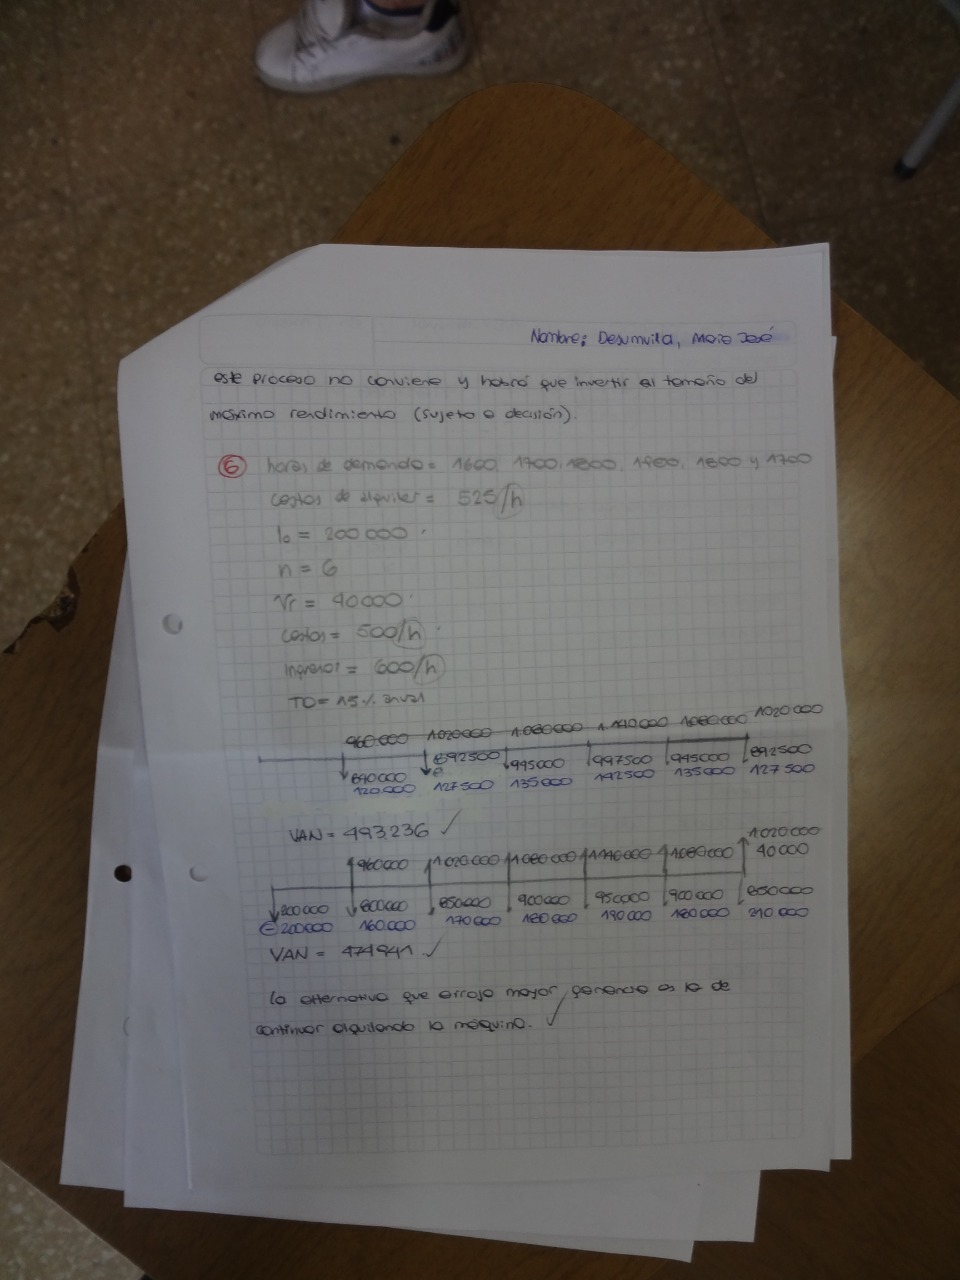 Nombre: Desumvila, Maria José
este proceso no conviene y habrá que invertir al tamaño del
máximo rendimiento (sujeto a decisión).
6 horas de demanda = 1600, 1700, 1800, 1900, 1800 y 1700
costos de alquiler = 525/h
I0 = 200 000
n = 6
Vr = 40000
costos = 500/h
ingresos = 600/h
TD = 15% anual
960000 1.020000 1.080000 1.140000 1080000 1.020000
840000 892500 945000 997500 945000 892500
120.000 127.500 135000 142500 135000 127500
VAN = 493.236
960000 1.020000 1.080000 1.140000 1.080000 1.020.000
40000
200000 800000 850000 900000 950000 900000 850000
200000 160.000 170000 180000 190000 180000 210000
VAN = 474941
la alternativa que arroja mayor ganancia es la de
continuar alquilando la máquina.